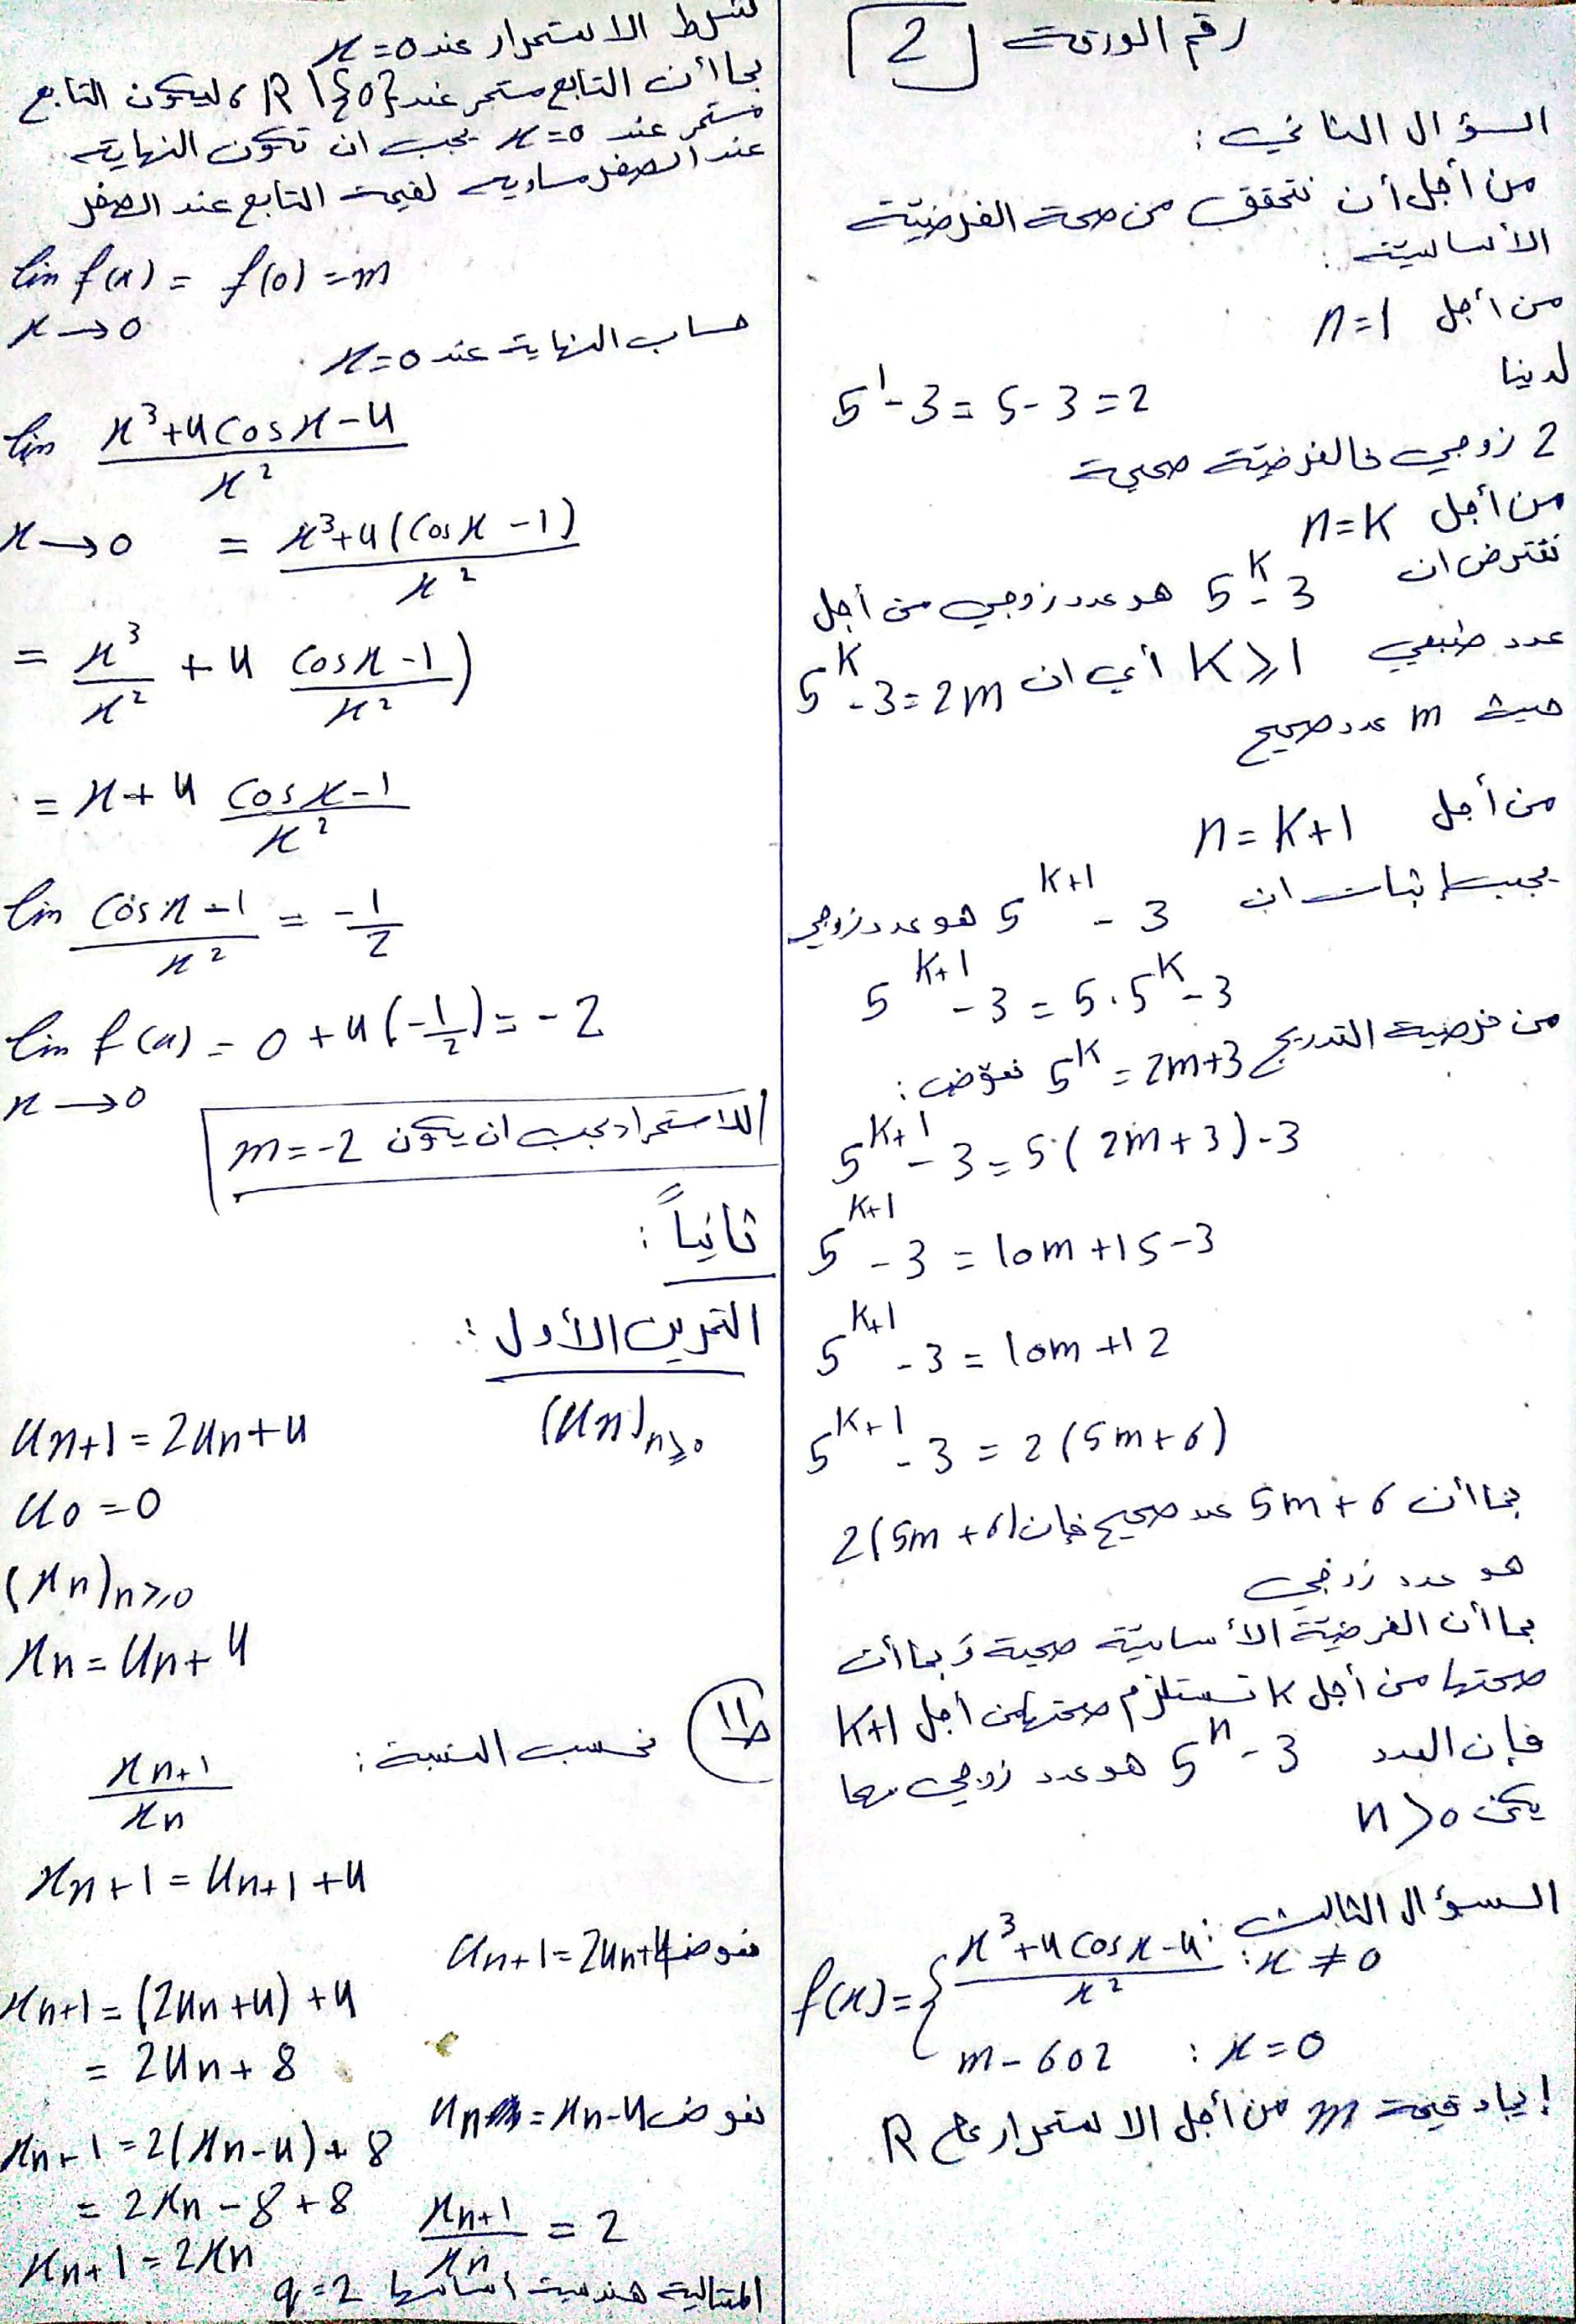 رقم الورقة 2
السؤال الثاني :
من أجل أن نتحقق من صحة الفرضيّة
الأساسيّة :
من أجل n=1
لدينا
5^1 - 3 = 5 - 3 = 2
2 زوجي فالفرضيّة صحيحة
من أجل n=k
نفترض ان 5^k - 3 هو عدد زوجي من أجل
عدد طبيعي k ⩾ 1 أي ان 5^k - 3 = 2m
حيث m عدد صحيح
من أجل n = k+1
يجب إثبات ان 5^{k+1} - 3 هو عدد زوجي
5^{k+1} - 3 = 5 . 5^k - 3
من فرضية التدريج 5^k = 2m+3 نعوّض :
5^{k+1} - 3 = 5 . (2m + 3) - 3
5^{k+1} - 3 = 10m + 15 - 3
5^{k+1} - 3 = 10m + 12
5^{k+1} - 3 = 2 (5m + 6)
بما أن 5m + 6 عدد صحيح فإن 2(5m + 6)
هو عدد زوجي
بما أن الفرضيّة الأساسيّة صحيحة وبما أن
صحتها من أجل k تستلزم صحتها من أجل k+1
فإن العدد 5^n - 3 هو عدد زوجي مهما
يكن n > 0
السؤال الثالث :
f(x) = { (x^3 + 4 cos x - 4) / x^2 : x ≠ 0
m - 602 : x = 0
إيجاد قيمة m من أجل الاستمرار على R
شرط الاستمرار عند x = 0
بما أن التابع مستمر عند R \ {0} ، ليكون التابع
مستمر عند x = 0 يجب ان تكون النهاية
عند الصفر مساوية لقيمة التابع عند الصفر
lim f(x) = f(0) = m
x → 0
حساب النهاية عند x = 0 .
lim (x^3 + 4 cos x - 4) / x^2
x → 0 = (x^3 + 4 (cos x - 1)) / x^2
= x^3 / x^2 + 4 (cos x - 1) / x^2 )
= x + 4 (cos x - 1) / x^2
lim (cos x - 1) / x^2 = -1/2
lim f(x) = 0 + 4 (-1/2) = -2
x → 0
للاستمرار يجب ان يكون m = -2
ثانياً :
التمرين الأول :
(Un)n⩾0
Un+1 = 2Un + 4
U0 = 0
(xn)n⩾0
xn = Un + 4
ط11 نحسب النسبة :
xn+1 / xn
xn+1 = Un+1 + 4
نعوض Un+1 = 2Un+4
xn+1 = (2Un + 4) + 4
= 2Un + 8
نعوض Un = xn - 4
xn+1 = 2(xn - 4) + 8
= 2xn - 8 + 8
xn+1 = 2xn
xn+1 / xn = 2
المتتالية هندسية أساسها q = 2